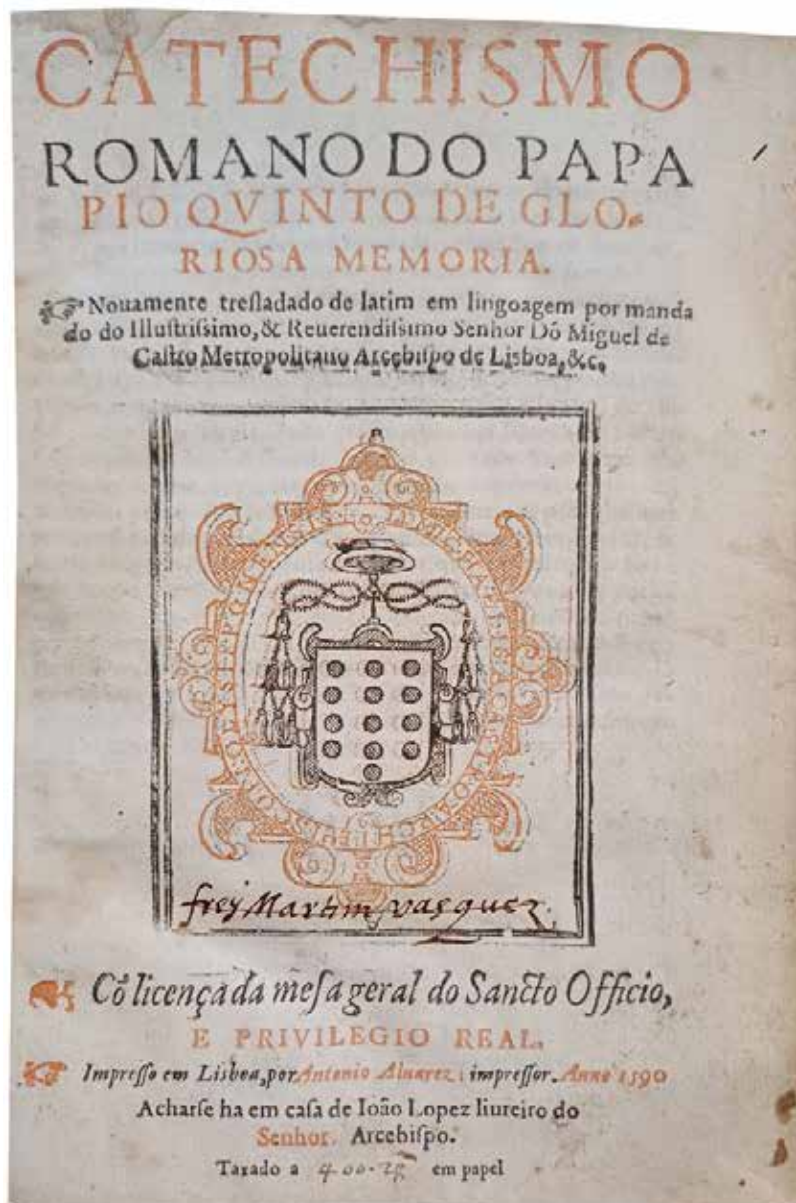 CATECHISMO
ROMANO DO PAPA
PIO QVINTO DE GLO-
RIOSA MEMORIA.
Nouamente tresladado de latim em lingoagem por manda
do do Illustrissimo, & Reuerendissimo Senhor Dõ Miguel de
Castro Metropolitano Arcebispo de Lisboa, &c,
D. MICHAELIS A CASTRO ARCHIEPISCOPI OLYSIPPONENSIS
frej Martim vasquez
Cõ licença da mesa geral do Sancto Officio,
E PRIVILEGIO REAL.
Impresso em Lisboa, por Antonio Aluarez: impressor. Anno 1590
Acharse ha em casa de Ioão Lopez liureiro do
Senhor. Arcebispo.
Taxado a 400 em papel